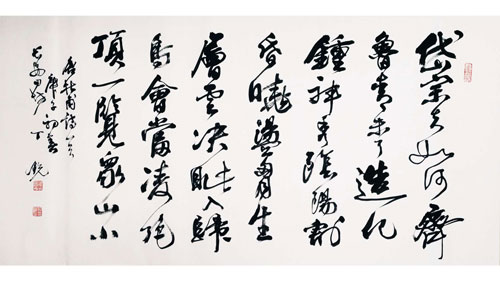 岱宗夫如何齊
魯青未了造化
鍾神秀陰陽割
昏曉盪胸生
層云決眥入歸
鳥會當凌絕
頂一覽眾山小
杜甫詩
庚子初春